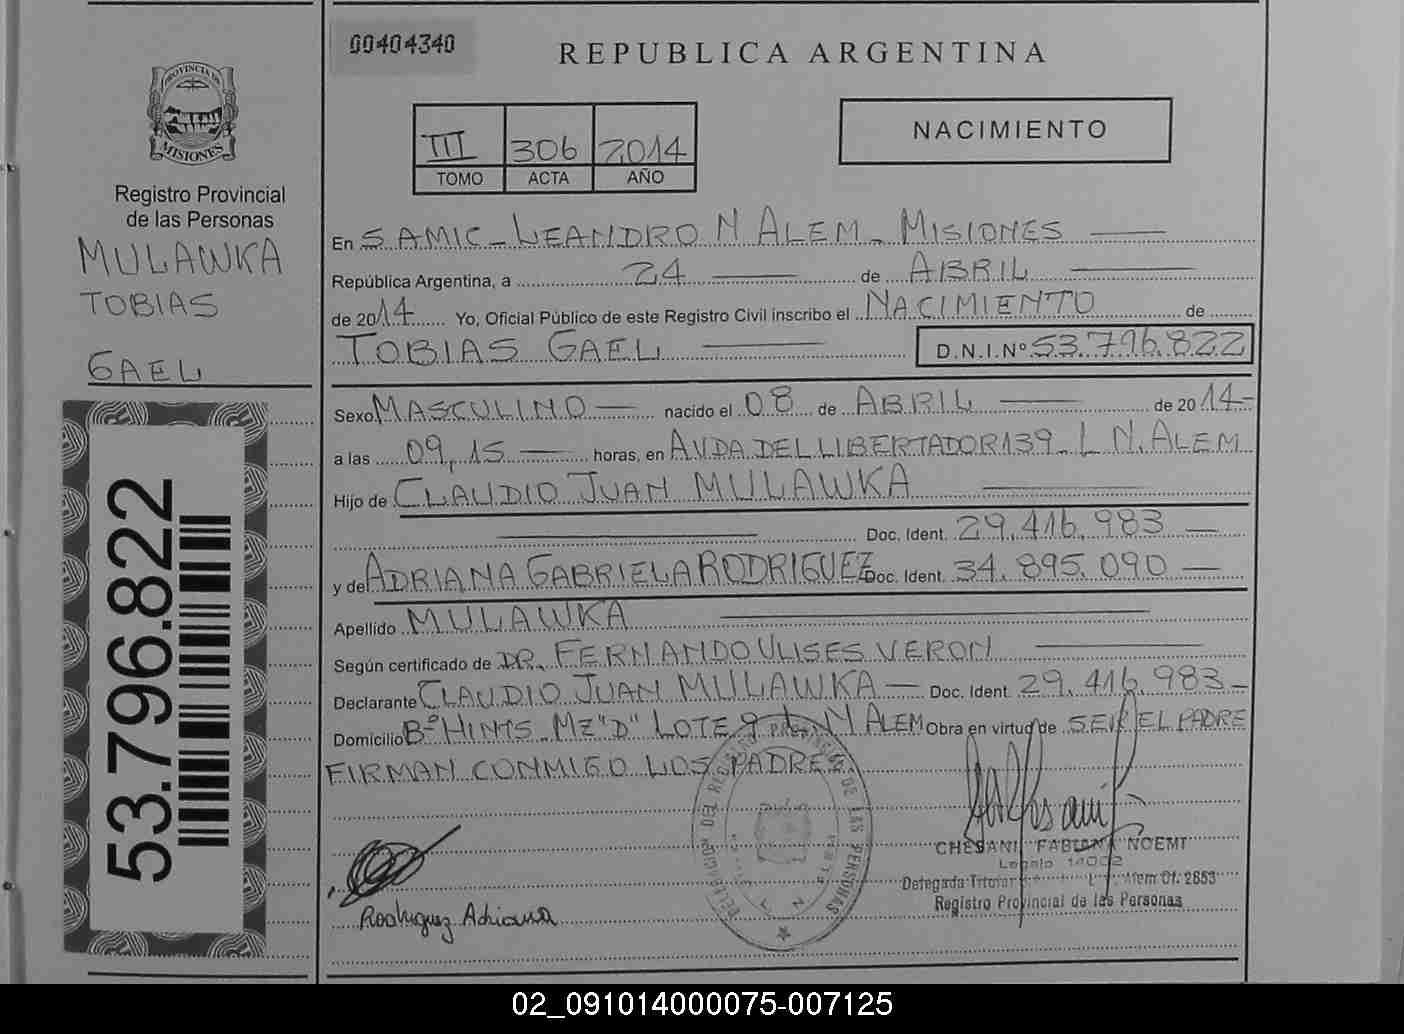 00404340
REPUBLICA ARGENTINA
PROVINCIA DE
MISIONES
Registro Provincial
de las Personas
MULAWKA
TOBIAS
GAEL
53.796.822
III 306 2014
TOMO ACTA AÑO
NACIMIENTO
En SAMIC - LEANDRO N ALEM - MISIONES
República Argentina, a 24 de ABRIL
de 2014 Yo, Oficial Público de este Registro Civil inscribo el NACIMIENTO de
TOBIAS GAEL D.N.I.Nº 53.796.822
Sexo MASCULINO nacido el 08 de ABRIL de 2014-
a las 09,15 horas, en AVDA DEL LIBERTADOR 139 - L N. ALEM
Hijo de CLAUDIO JUAN MULAWKA
Doc. Ident. 29.416.983
y de ADRIANA GABRIELA RODRIGUEZ Doc. Ident. 34.895.090
Apellido MULAWKA
Según certificado de DR. FERNANDO ULISES VERON
Declarante CLAUDIO JUAN MULAWKA Doc. Ident. 29.416.983-
Domicilio Bº HINTS - MZ "D" LOTE 9 L N ALEM Obra en virtud de SER EL PADRE
FIRMAN CONMIGO LOS PADRES
DELEGACION DEL REGISTRO PROVINCIAL DE LAS PERSONAS
CHESANI, FABIANA NOEMI
Legajo 14002
Delegada Titular Alem Of. 2853
Registro Provincial de las Personas
Rodriguez Adriana
02_091014000075-007125